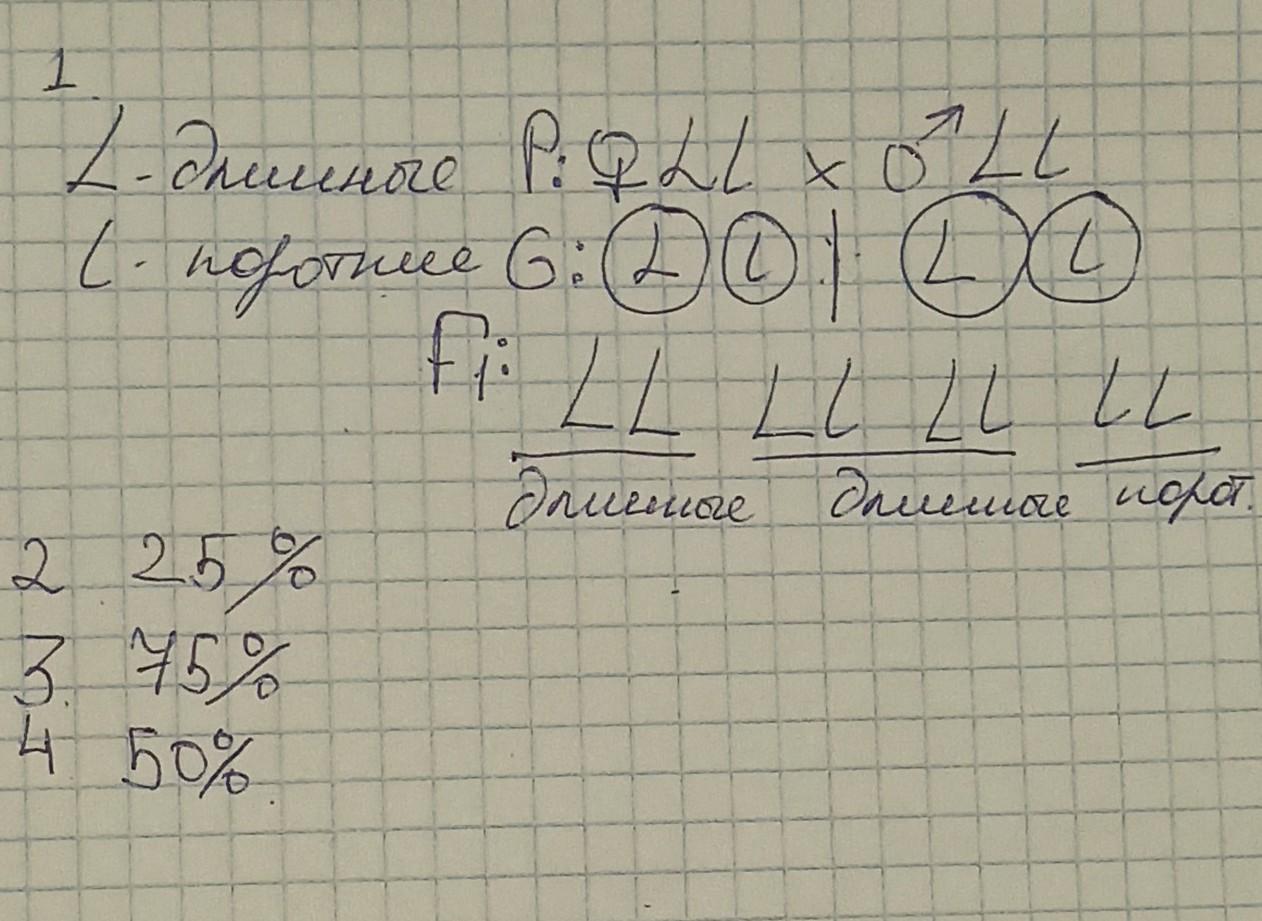 1.
L - длинные P: ♀ Ll × ♂ Ll
l - короткие G: L l | L l
F1: LL Ll Ll ll
длинные длинные корот.
2 25%
3. 75%
4 50%.